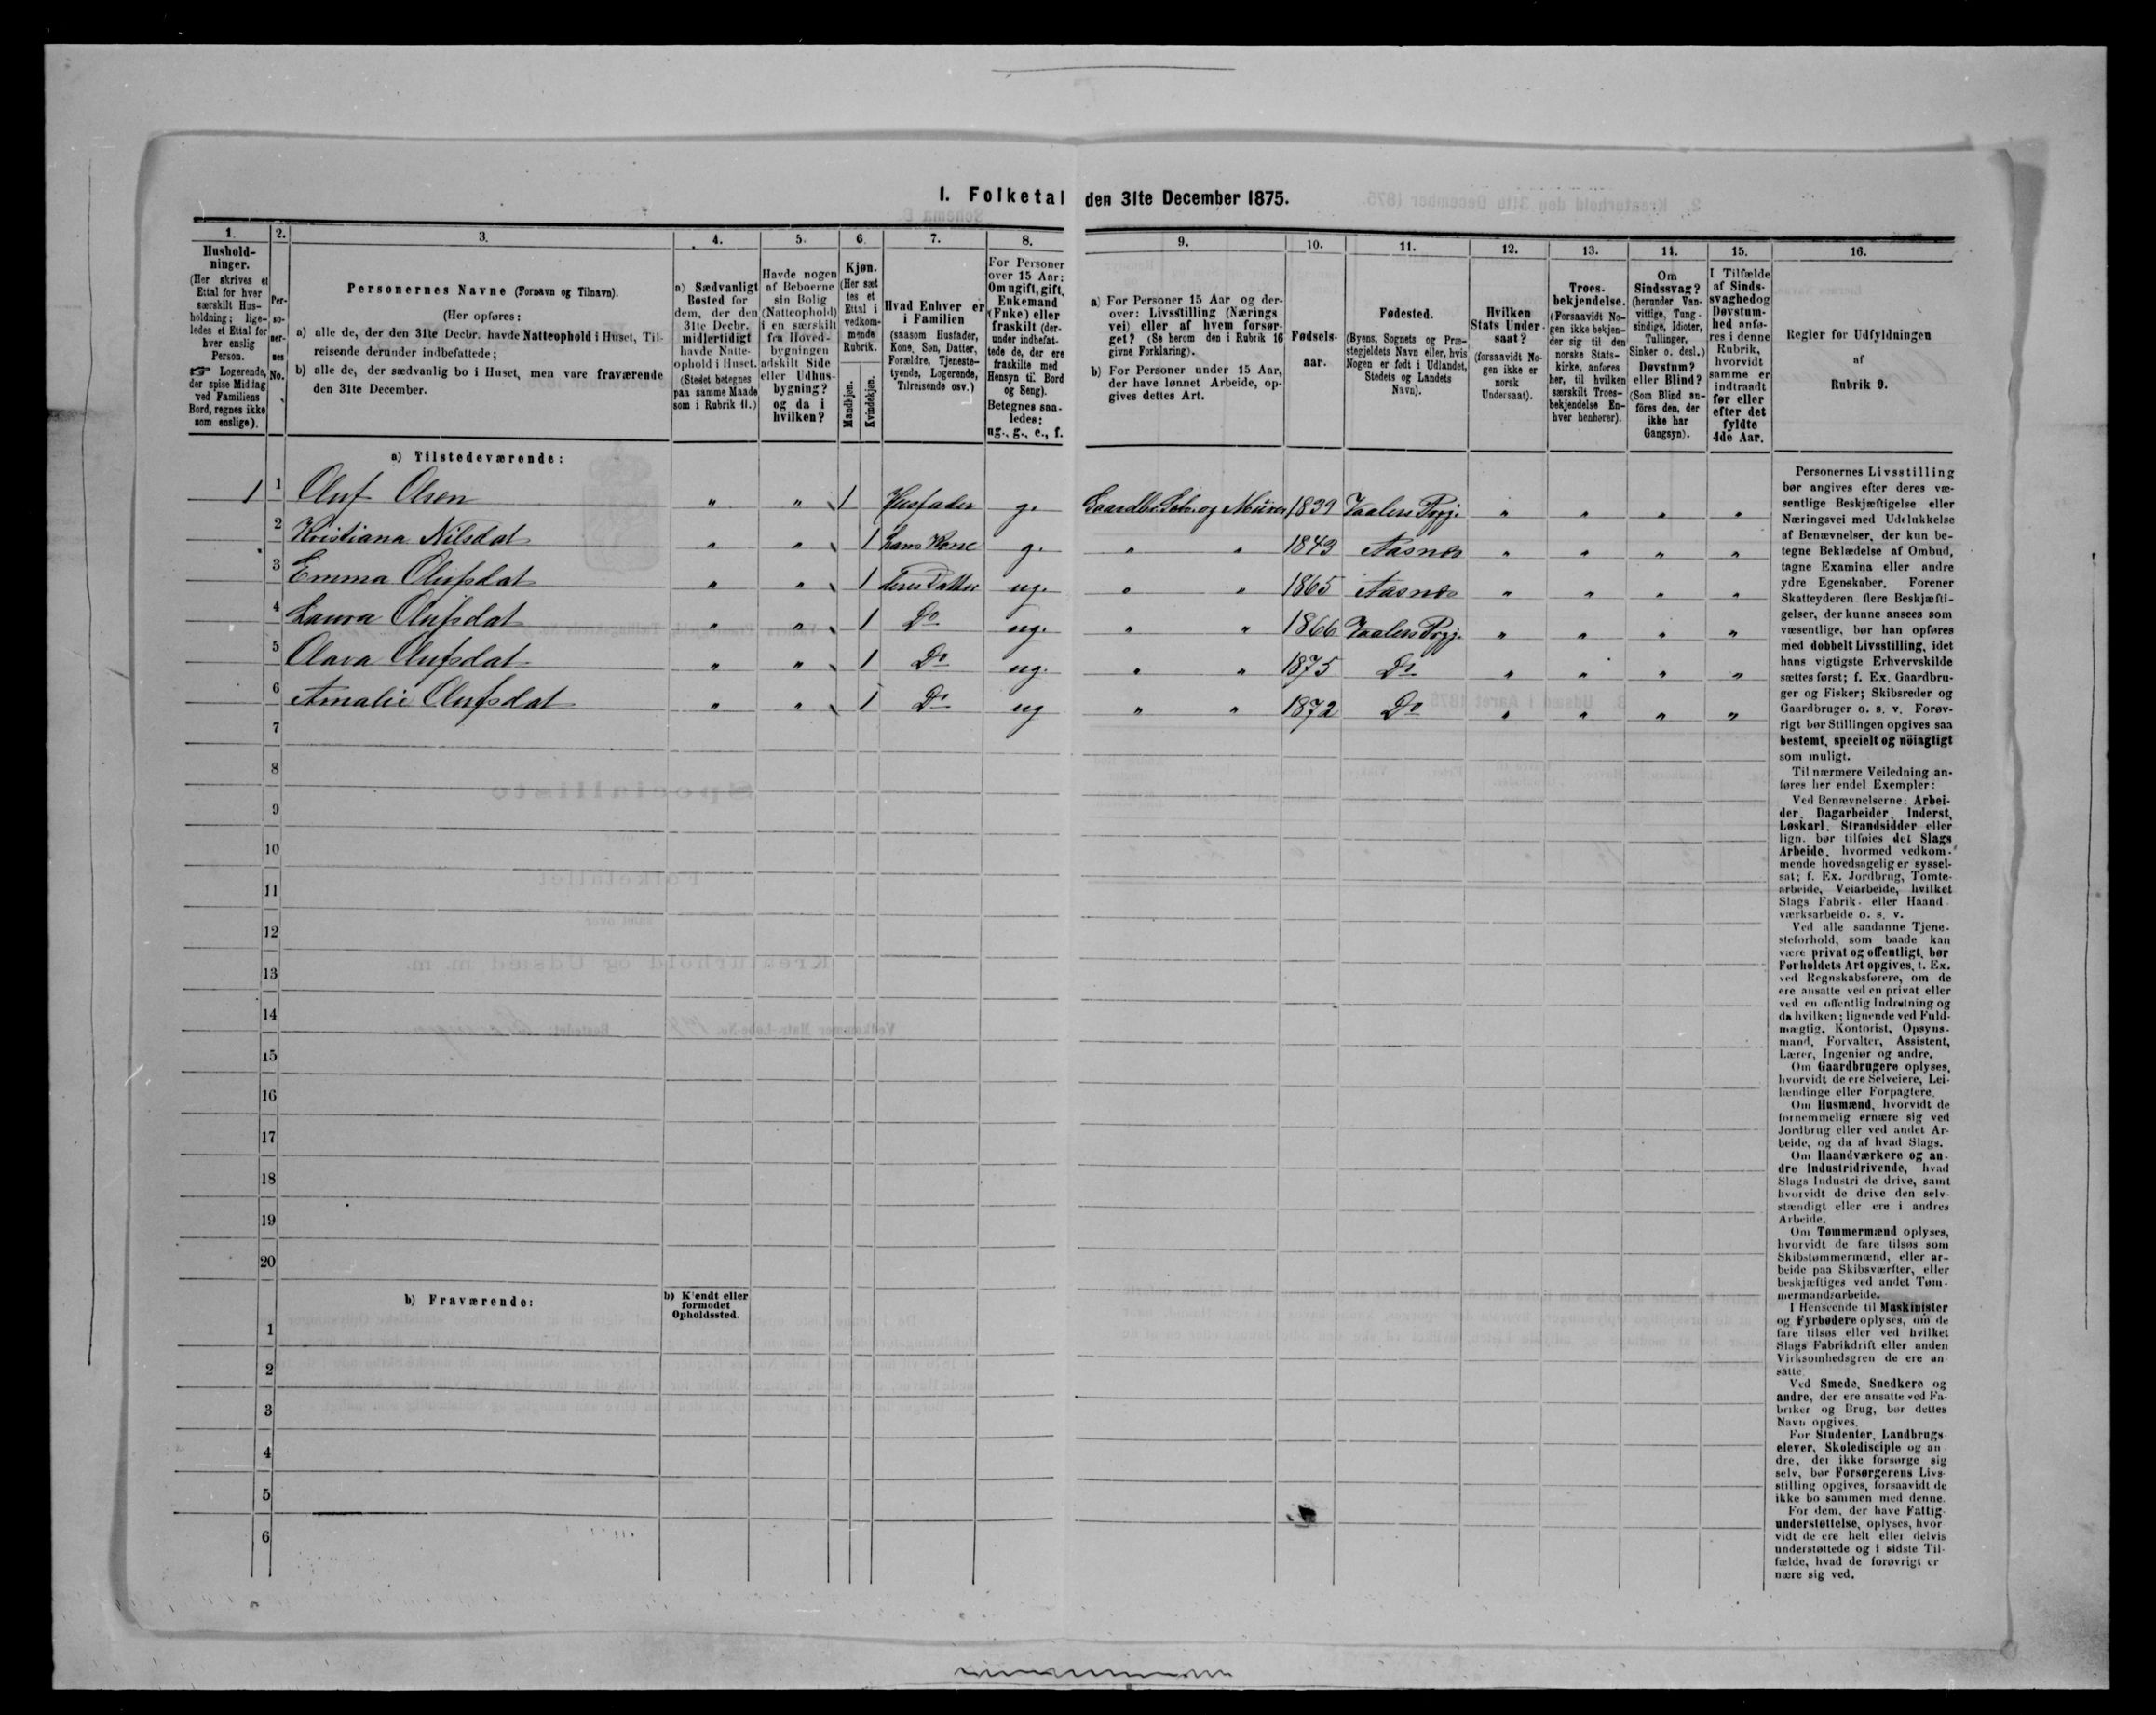 I. Folketal den 31te December 1875.
1.
Hushold-
ninger.
(Her skrives et
Ettal for hver
særskilt Hus-
holdning; lige-
ledes et Ettal for
hver enslig
Person.
☞ Logerende,
der spise Middag
ved Familiens
Bord, regnes ikke
som enslige).
2.
Per-
so-
ner-
nes
No.
3.
Personernes Navne (Fornavn og Tilnavn).
(Her opføres:
a) alle de, der den 31te Decbr. havde Natteophold i Huset, Til-
reisende derunder indbefattede;
b) alle de, der sædvanlig bo i Huset, men vare fraværende
den 31te December.
4.
a) Sædvanligt
Bosted for
dem, der den
31te Decbr.
midlertidigt
havde Natte-
ophold i Huset.
(Stedet betegnes
paa samme Maade
som i Rubrik 11.)
5.
Havde nogen
af Beboerne
sin Bolig
(Natteophold)
i en særskilt
fra Hoved-
bygningen
adskilt Side
eller Udhus-
bygning?
og da i
hvilken?
6.
Kjøn.
(Her sæt
tes et
Ettal i
vedkom-
mende
Rubrik.
Mandkjøn.
Kvindekjøn.
7.
Hvad Enhver er
i Familien
(saasom Husfader,
Kone, Søn, Datter,
Forældre, Tjeneste-
tyende, Logerende,
Tilreisende osv.)
8.
For Personer
over 15 Aar:
Om ugift, gift,
Enkemand
(Enke) eller
fraskilt (der-
under indbefat-
tede de, der ere
fraskilte med
Hensyn til Bord
og Seng).
Betegnes saa-
ledes:
ug., g., e., f.
9.
a) For Personer 15 Aar og der-
over: Livsstilling (Nærings
vei) eller af hvem forsør-
get? (Se herom den i Rubrik 16
givne Forklaring).
b) For Personer under 15 Aar,
der have lønnet Arbeide, op-
gives dettes Art.
10.
Fødsels-
aar.
11.
Fødested.
(Byens, Sognets og Præ-
stegjeldets Navn eller, hvis
Nogen er født i Udlandet,
Stedets og Landets
Navn).
12.
Hvilken
Stats Under-
saat?
(forsaavidt No-
gen ikke er
norsk
Undersaat).
13.
Troes-
bekjendelse.
(Forsaavidt No-
gen ikke bekjen-
der sig til den
norske Stats-
kirke, anføres
her, til hvilken
særskilt Troes-
bekjendelse En-
hver henhører).
14.
Om
Sindssvag?
(herunder Van-
vittige, Tung-
sindige, Idioter,
Tullinger,
Sinker o. desl.)
Døvstum?
eller Blind?
(Som Blind an-
føres den, der
ikke har
Gangsyn).
15.
I Tilfælde
af Sinds-
svaghed og
Døvstum-
hed anfø-
res i denne
Rubrik,
hvorvidt
samme er
indtraadt
før eller
efter det
fyldte
4de Aar.
16.
Regler for Udfyldningen
af
Rubrik 9.
a) Tilstedeværende:
1 1 Oluf Olsen " " 1 Husfader g. Gaardbr. Selv. og Murer 1839 Vaalers Prgj. " " " "
2 Kristiana Nilsdat " " 1 hans Kone g. " " 1843 Aasnes " " " "
3 Emma Olufsdat " " 1 deres Datter ug. " " 1865 Aasnes " " " "
4 Laura Olufsdat " " 1 Do ug. " " 1866 Vaalers Prgj. " " " "
5 Olava Olufsdat " " 1 Do ug. " " 1875 Do " " " "
6 Amalie Olufsdat " " 1 Do ug " " 1872 Do " " " "
7
8
9
10
11
12
13
14
15
16
17
18
19
20
b) Fraværende:
b) Kjendt eller
formodet
Opholdssted.
1
2
3
4
5
6
Personernes Livsstilling
bør angives efter deres væ-
sentlige Beskjæftigelse eller
Næringsvei med Udelukkelse
af Benævnelser, der kun be-
tegne Beklædelse af Ombud,
tagne Examina eller andre
ydre Egenskaber. Forener
Skatteyderen flere Beskjæfti-
gelser, der kunne ansees som
væsentlige, bør han opføres
med dobbelt Livsstilling, idet
hans vigtigste Erhvervskilde
sættes først; f. Ex. Gaardbru-
ger og Fisker; Skibsreder og
Gaardbruger o. s. v. Forøv-
rigt bør Stillingen opgives saa
bestemt, specielt og nöiagtigt
som muligt.
Til nærmere Veiledning an-
føres her endel Exempler:
Ved Benævnelserne: Arbei-
der, Dagarbeider, Inderst,
Løskarl, Strandsidder eller
lign. bør tilføies det Slags
Arbeide, hvormed vedkom-
mende hovedsagelig er syssel-
sat; f. Ex. Jordbrug, Tomte-
arbeide, Veiarbeide, hvilket
Slags Fabrik- eller Haand-
værksarbeide o. s. v.
Ved alle saadanne Tjene-
steforhold, som baade kan
være privat og offentligt, bør
Forholdets Art opgives, t. Ex.
ved Regnskabsførere, om de
ere ansatte ved en privat eller
ved en offentlig Indretning og
da hvilken; lignende ved Fuld-
mægtig, Kontorist, Opsyns-
mand, Forvalter, Assistent,
Lærer, Ingeniør og andre.
Om Gaardbrugere oplyses,
hvorvidt de ere Selveiere, Lei-
lændinge eller Forpagtere.
Om Husmænd, hvorvidt de
fornemmelig ernære sig ved
Jordbrug eller ved andet Ar-
beide, og da af hvad Slags.
Om Haandværkere og an-
dre Industridrivende, hvad
Slags Industri de drive, samt
hvorvidt de drive den selv-
stændigt eller ere i andres
Arbeide.
Om Tømmermænd oplyses,
hvorvidt de fare tilsøs som
Skibstømmermænd, eller ar-
beide paa Skibsværfter, eller
beskjæftiges ved andet Tøm-
mermandsarbeide.
I Henseende til Maskinister
og Fyrbødere oplyses, om de
fare tilsøs eller ved hvilket
Slags Fabrikdrift eller anden
Virksomhedsgren de ere an-
satte.
Ved Smede, Snedkere og
andre, der ere ansatte ved Fa-
briker og Brug, bør dettes
Navn opgives.
For Studenter, Landbrugs-
elever, Skoledisciple og an-
dre, der ikke forsørge sig
selv, bør Forsørgerens Livs-
stilling opgives, forsaavidt de
ikke bo sammen med denne.
For dem, der have Fattig-
understøttelse, oplyses, hvor-
vidt de ere helt eller delvis
understøttede og i sidste Til-
fælde, hvad de forøvrigt er
nære sig ved.